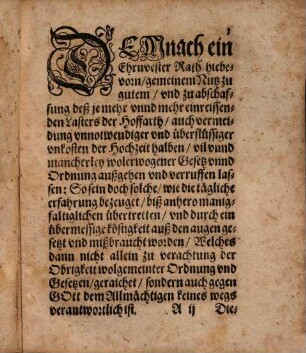 DEMnach ein
Ehrnvester Rath hiebe-
vorn / gemeinem Nutz zu
gutem / vnd zu abschaf-
fung deß je mehr vnnd mehr einreissen-
den Lasters der Hoffarth / auch vermei-
dung vnnotwendiger vnd überflüssiger
vnkosten der Hochzeit halben / vil vnnd
mancherley wolerwogener Gesetz vnnd
Ordnung außgehen vnd verruffen las-
sen: So sein doch solche / wie die tägliche
erfahrung bezeuget / biß anhero manig-
faltiglichen übertretten / vnd durch ein
übermessige köstigkeit auß den augen ge-
setzt vnd mißbraucht worden / Welches
dann nicht allein zu verachtung der
Obrigkeit wolgemeinter Ordnung vnd
Gesetzen / geraichet / sondern auch gegen
GOtt dem Allmächtigen keines wegs
verantwortlich ist.
A ij Die-